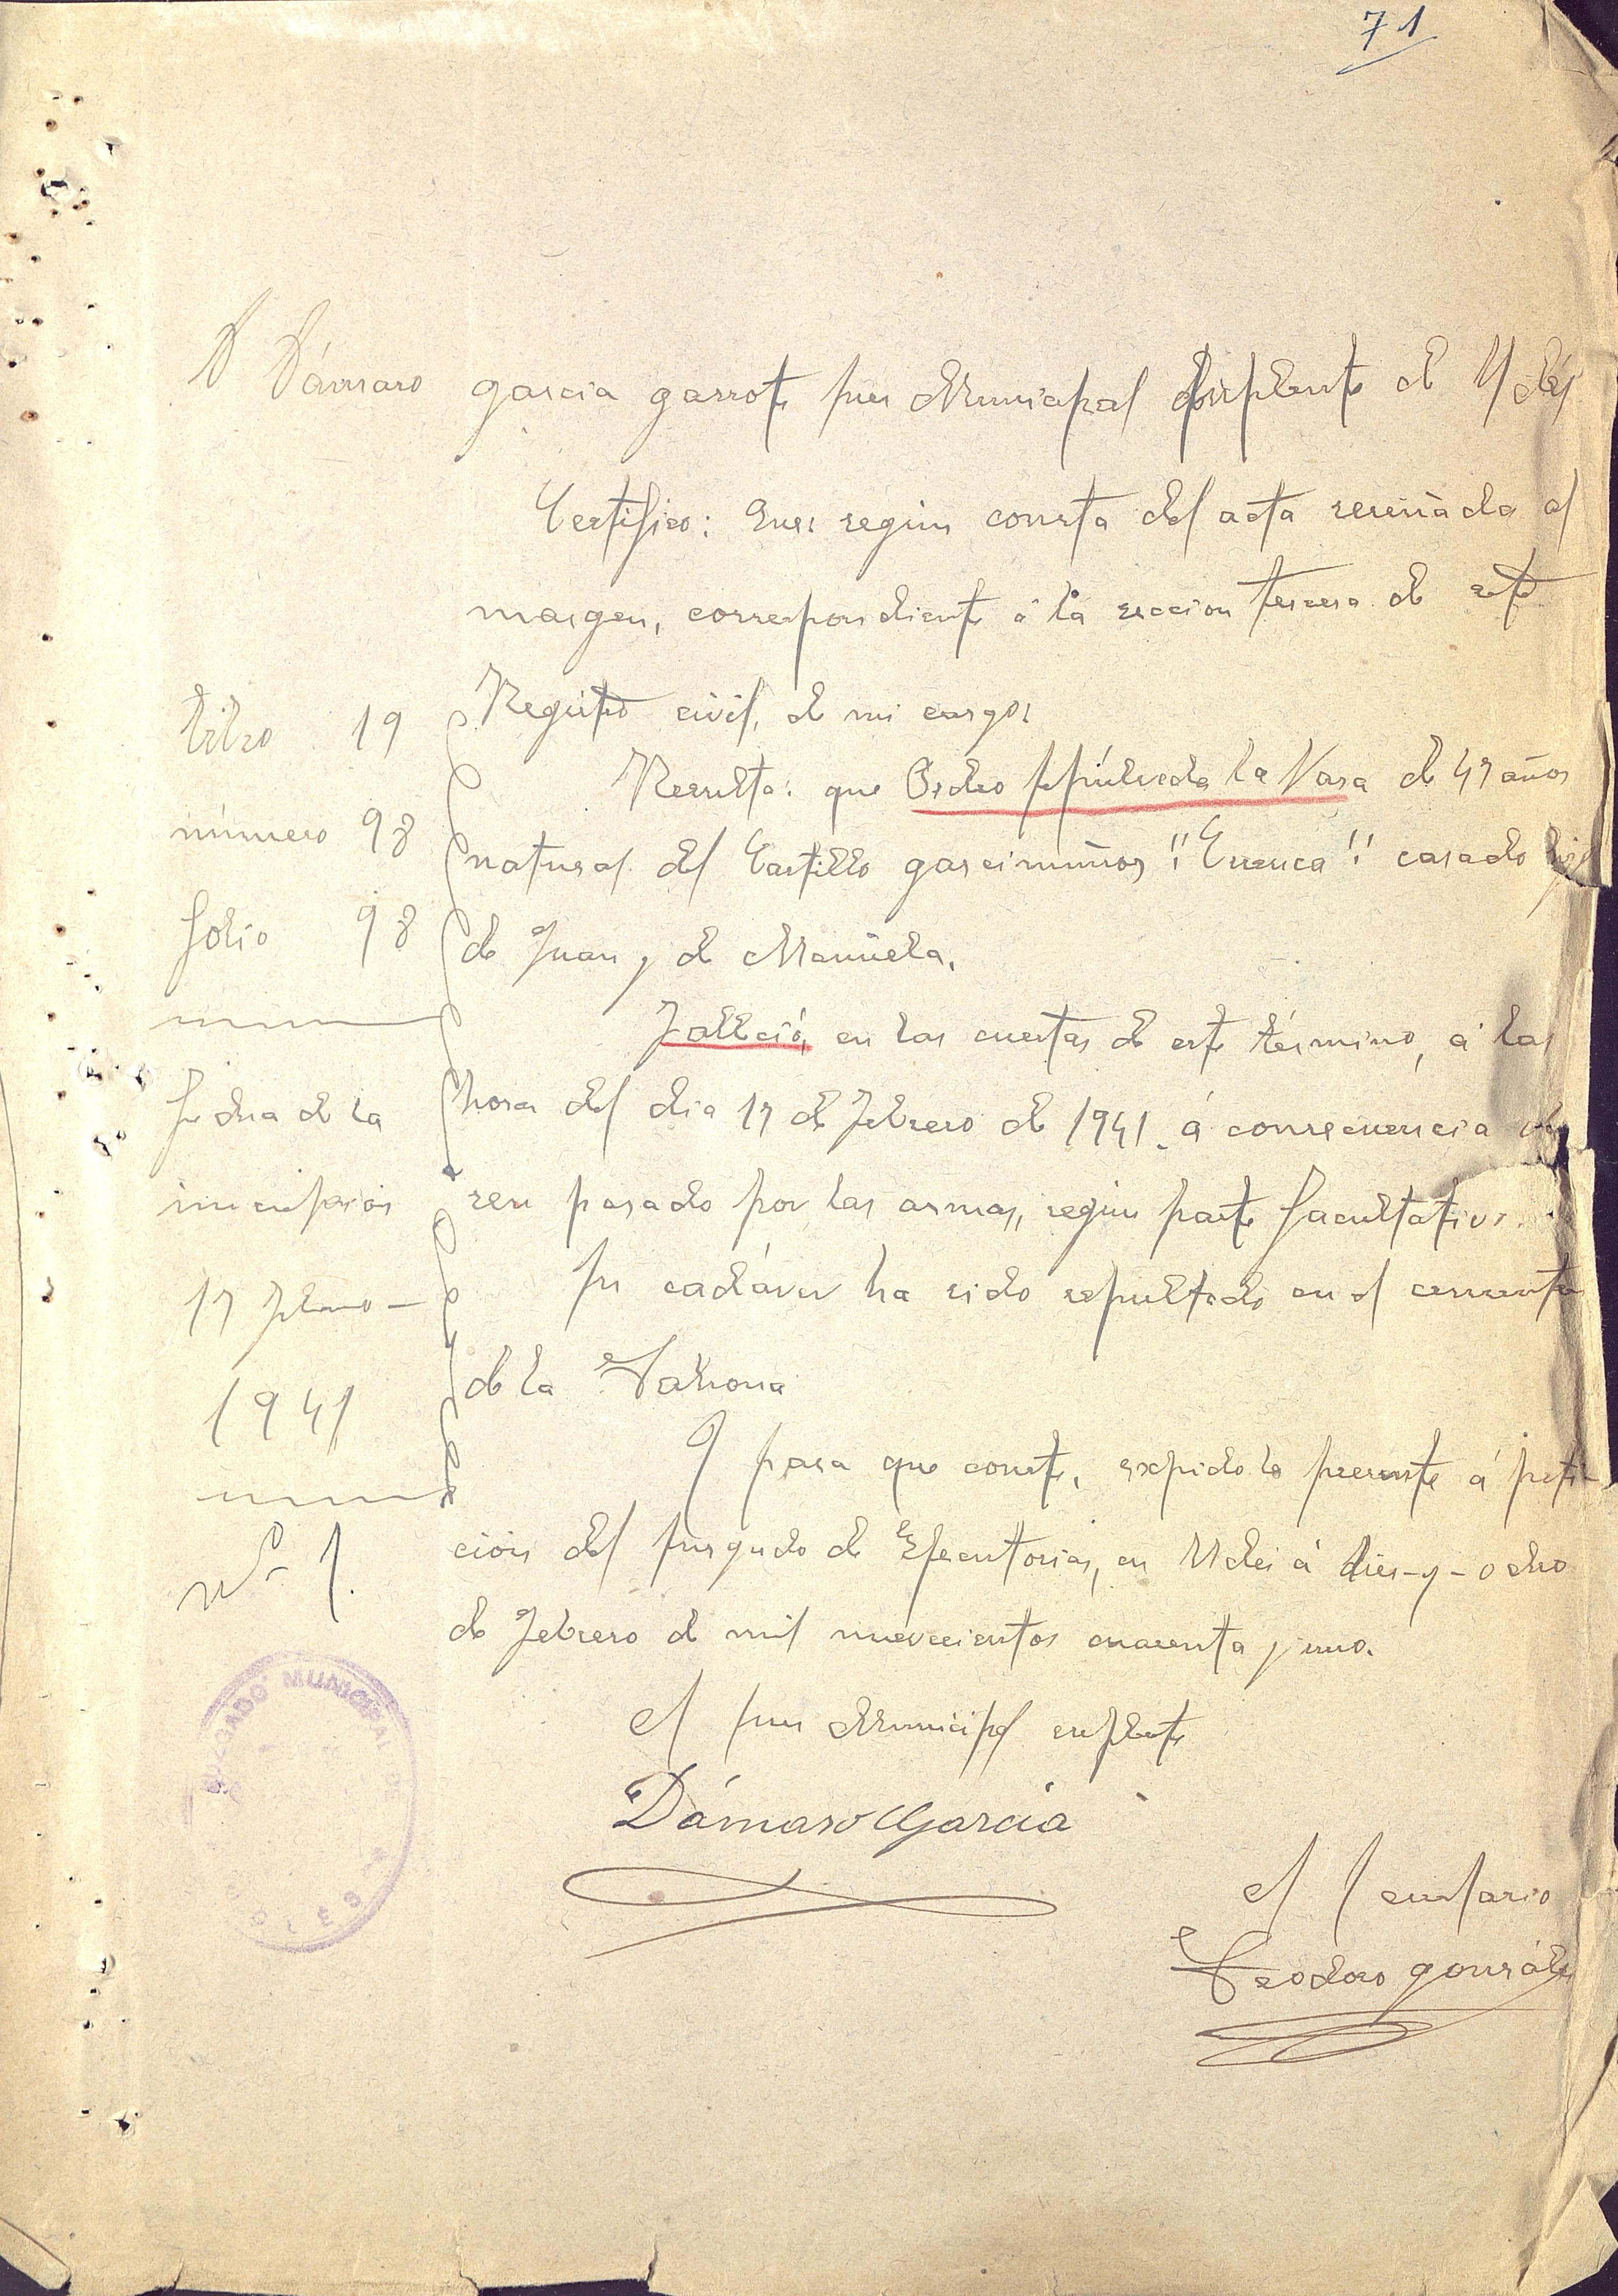 71
D Dámaso garcia garrote juez Municipal suplente de Uclés
Certifico: Que: según consta del acta reseñada al
margen, correspondiente á la seccion tercera de este
Registro civil, de mi cargo:
libro 19
número 98
folio 98
fecha de la
inscripción
17 febrero -
1941
Nº 1.
Resulta: que Pedro Sepúlveda la Vara de 47 años
natural del Castillo garcimuños "Cuenca" casado hijo
de Juan y de Manuela.
Falleció, en las cuestas de este término, á las
horas del dia 17 de Febrero de 1941. á consecuencia de
ser pasado por las armas, según parte facultativo.
Su cadáver ha sido sepultado en el cementerio
de la Tahona
Y para que conste, expido la presente á peti-
ción del Jusgado de Ejecutorias, en Uclés á dies-y-ocho
de Febrero de mil nuevecientos cuarenta y uno.
El Juez Municipal suplente
Dámaso García
El Secretario
Teodoro gonzález
JUZGADO MUNICIPAL DE
UCLÉS